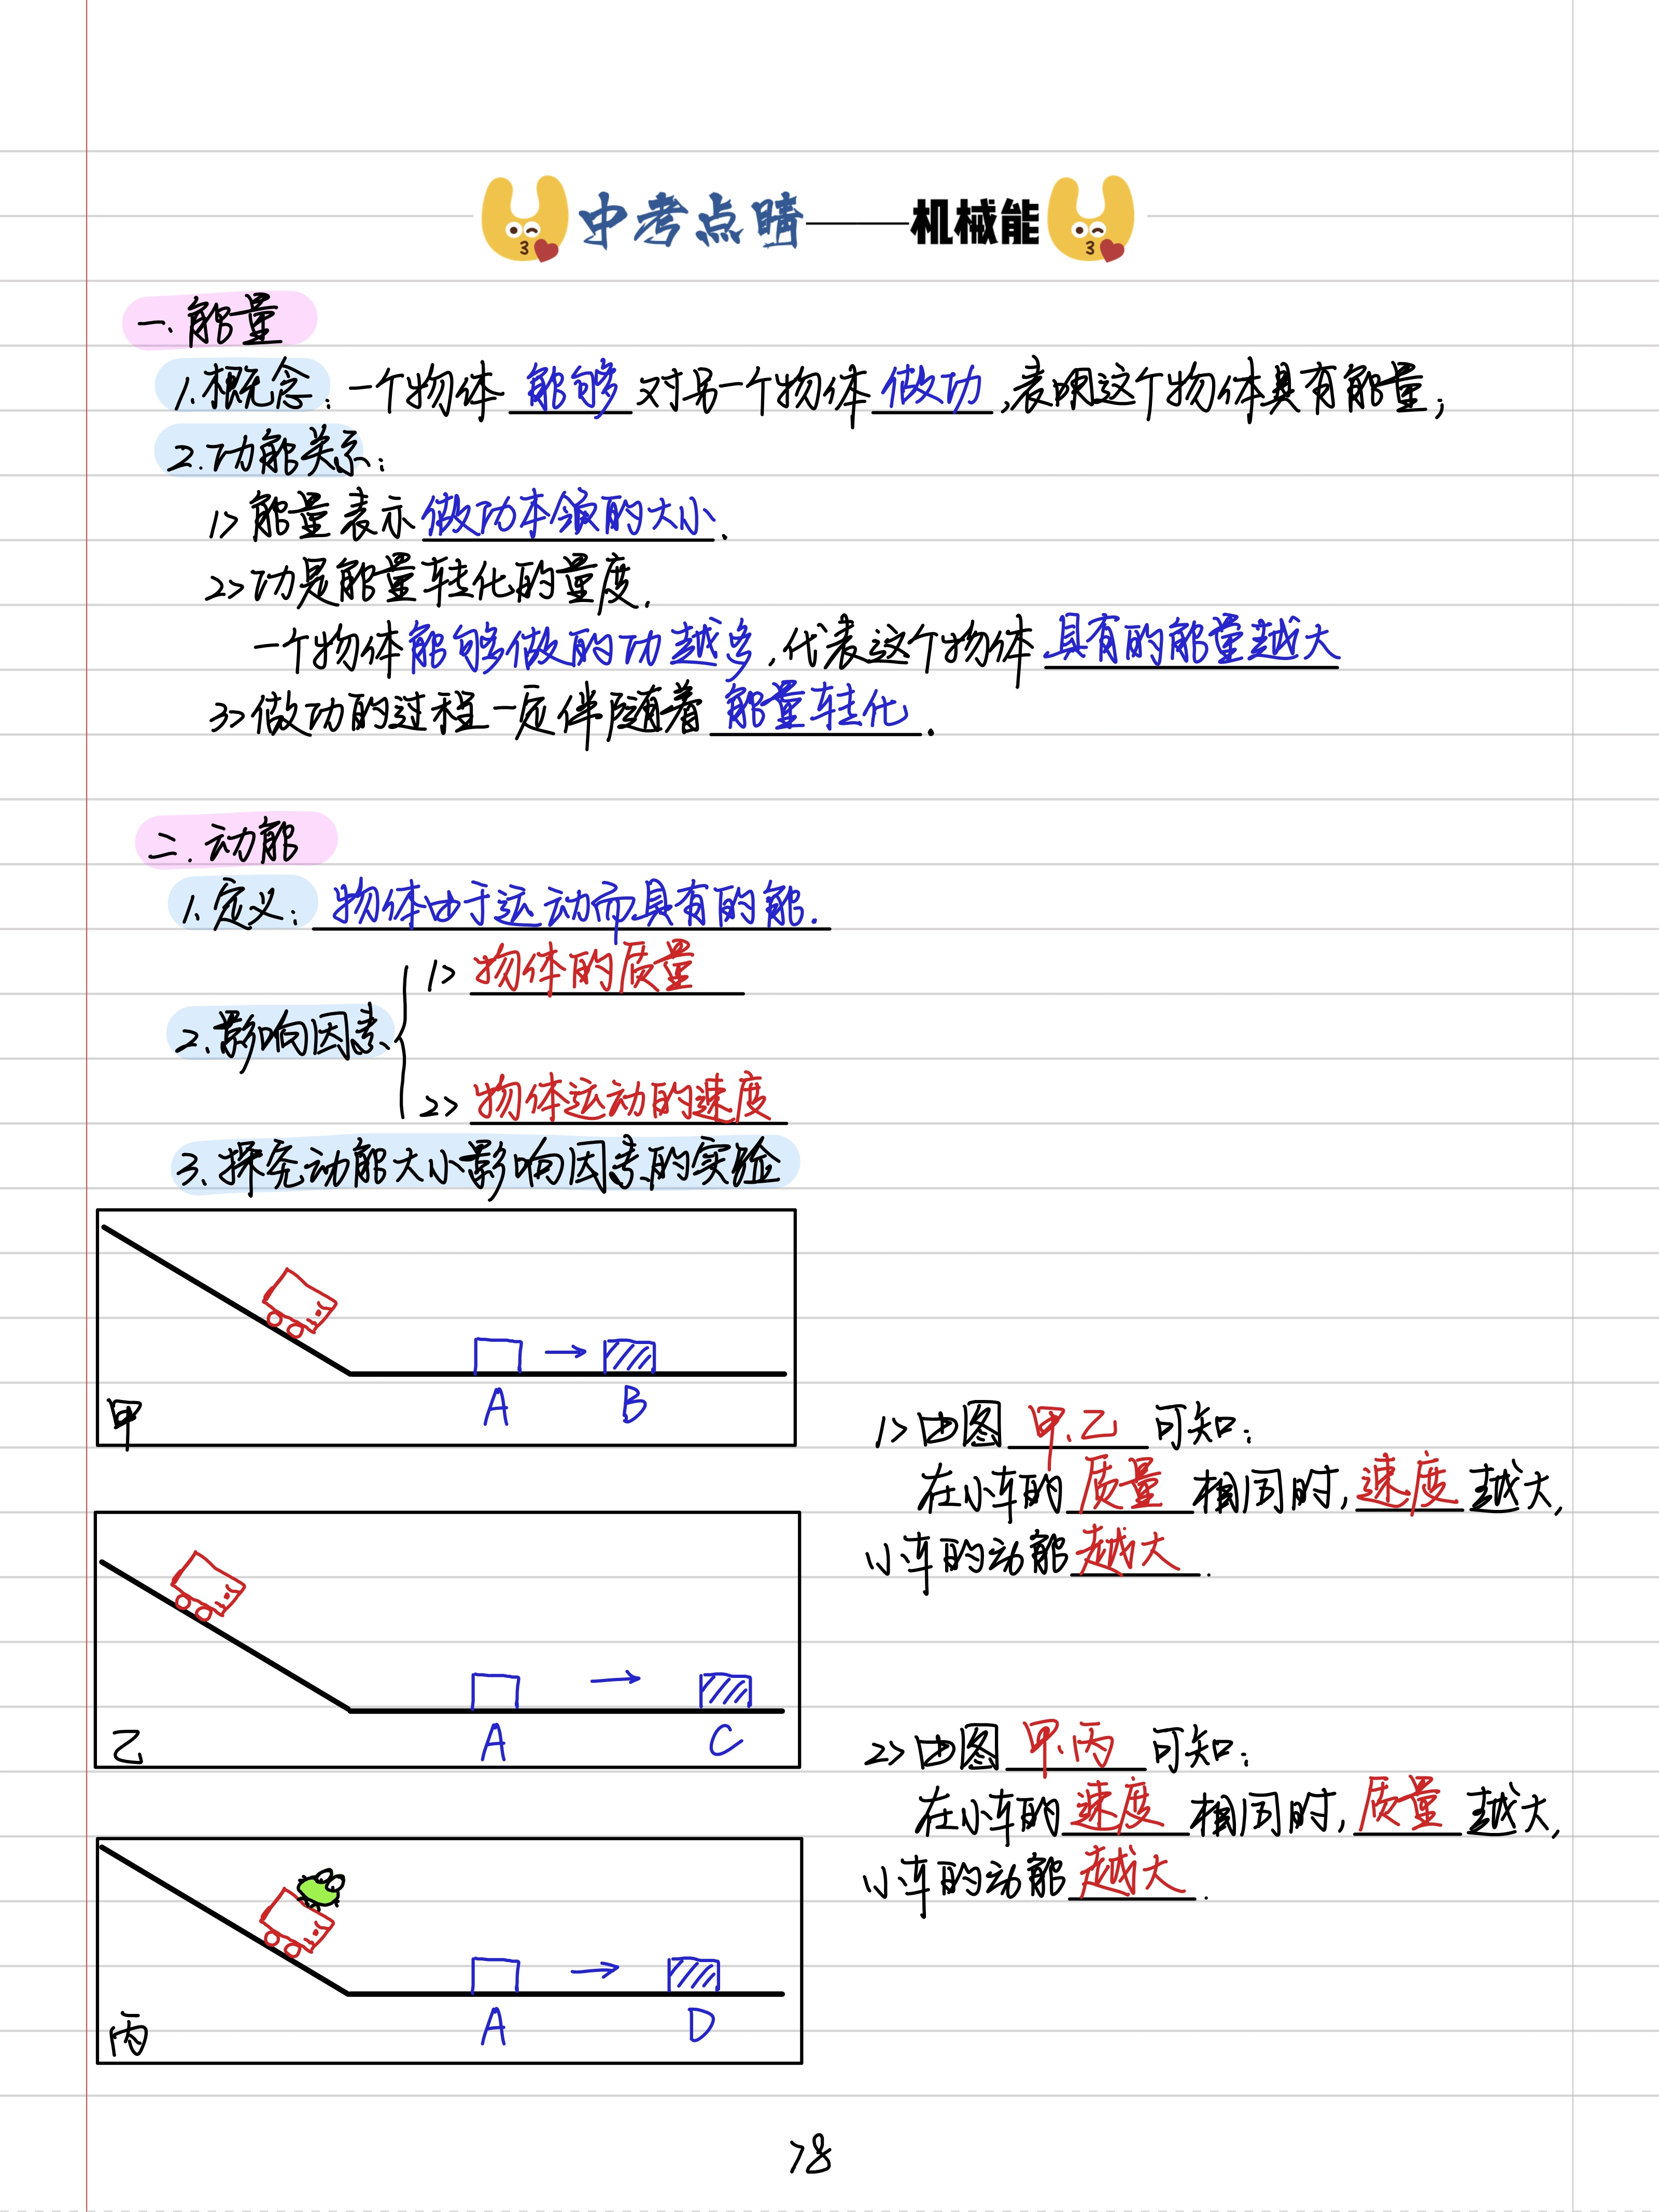 中考点睛——机械能
一.能量
1.概念:一个物体 能够 对另一个物体 做功,表明这个物体具有能量;
2.功能关系:
1>能量表示做功本领的大小.
2>功是能量转化的量度.
一个物体能够做的功越多,代表这个物体具有的能量越大
3>做功的过程一定伴随着 能量转化.
二.动能
1.定义: 物体由于运动而具有的能.
1>物体的质量
2.影响因素
2>物体运动的速度
3.探究动能大小影响因素的实验
A B
甲
1>由图 甲、乙 可知:
在小车的 质量 相同时,速度 越大,
小车的动能越大.
A C
乙
2>由图 甲、丙 可知:
在小车的 速度 相同时,质量 越大,
小车的动能 越大.
A D
丙
78